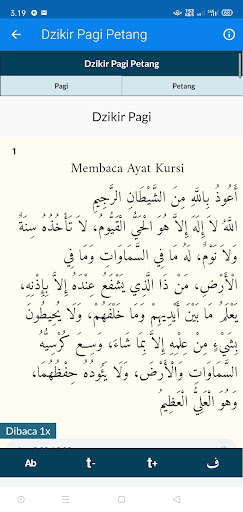 3.19
Dzikir Pagi Petang
Dzikir Pagi Petang
Pagi
Petang
Dzikir Pagi
1
Membaca Ayat Kursi
أَعُوذُ بِاللَّهِ مِنَ الشَّيْطَانِ الرَّجِيمِ
اللَّهُ لاَ إِلَهَ إِلاَّ هُوَ الْحَيُّ الْقَيُّومُ، لاَ تَأْخُذُهُ سِنَةٌ
وَلاَ نَوْمٌ، لَهُ مَا فِي السَّمَاوَاتِ وَمَا فِي
الْأَرْضِ، مَن ذَا الَّذِي يَشْفَعُ عِنْدَهُ إِلاَّ بِإِذْنِهِ،
يَعْلَمُ مَا بَيْنَ أَيْدِيهِمْ وَمَا خَلْفَهُمْ، وَلاَ يُحِيطُونَ
بِشَيْءٍ مِنْ عِلْمِهِ إِلاَّ بِمَا شَاءَ، وَسِعَ كُرْسِيُّهُ
السَّمَاوَاتِ وَالْأَرْضَ، وَلاَ يَئُودُهُ حِفْظُهُمَا،
وَهُوَ الْعَلِيُّ الْعَظِيمُ
Dibaca 1x
Ab
t-
t+
ف